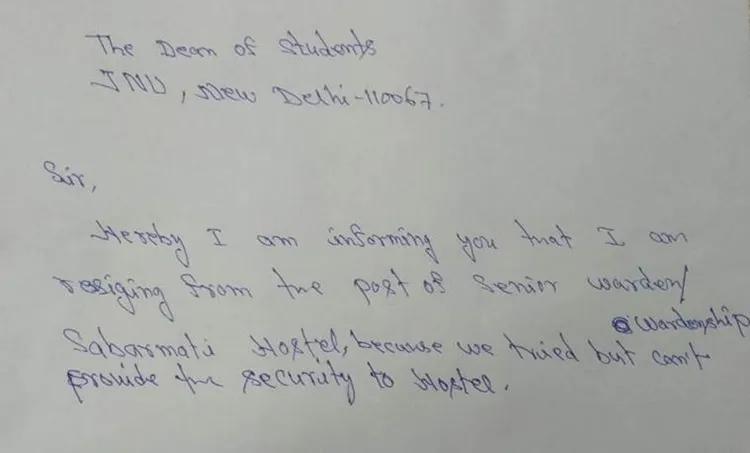 The Dean of Students
JNU, New Delhi-110067.
Sir,
Hereby I am informing you that I am
resiging from the post of Senior warden/
wardenship
Sabarmati Hostel, because we tried but can't
provide the security to Hostel.